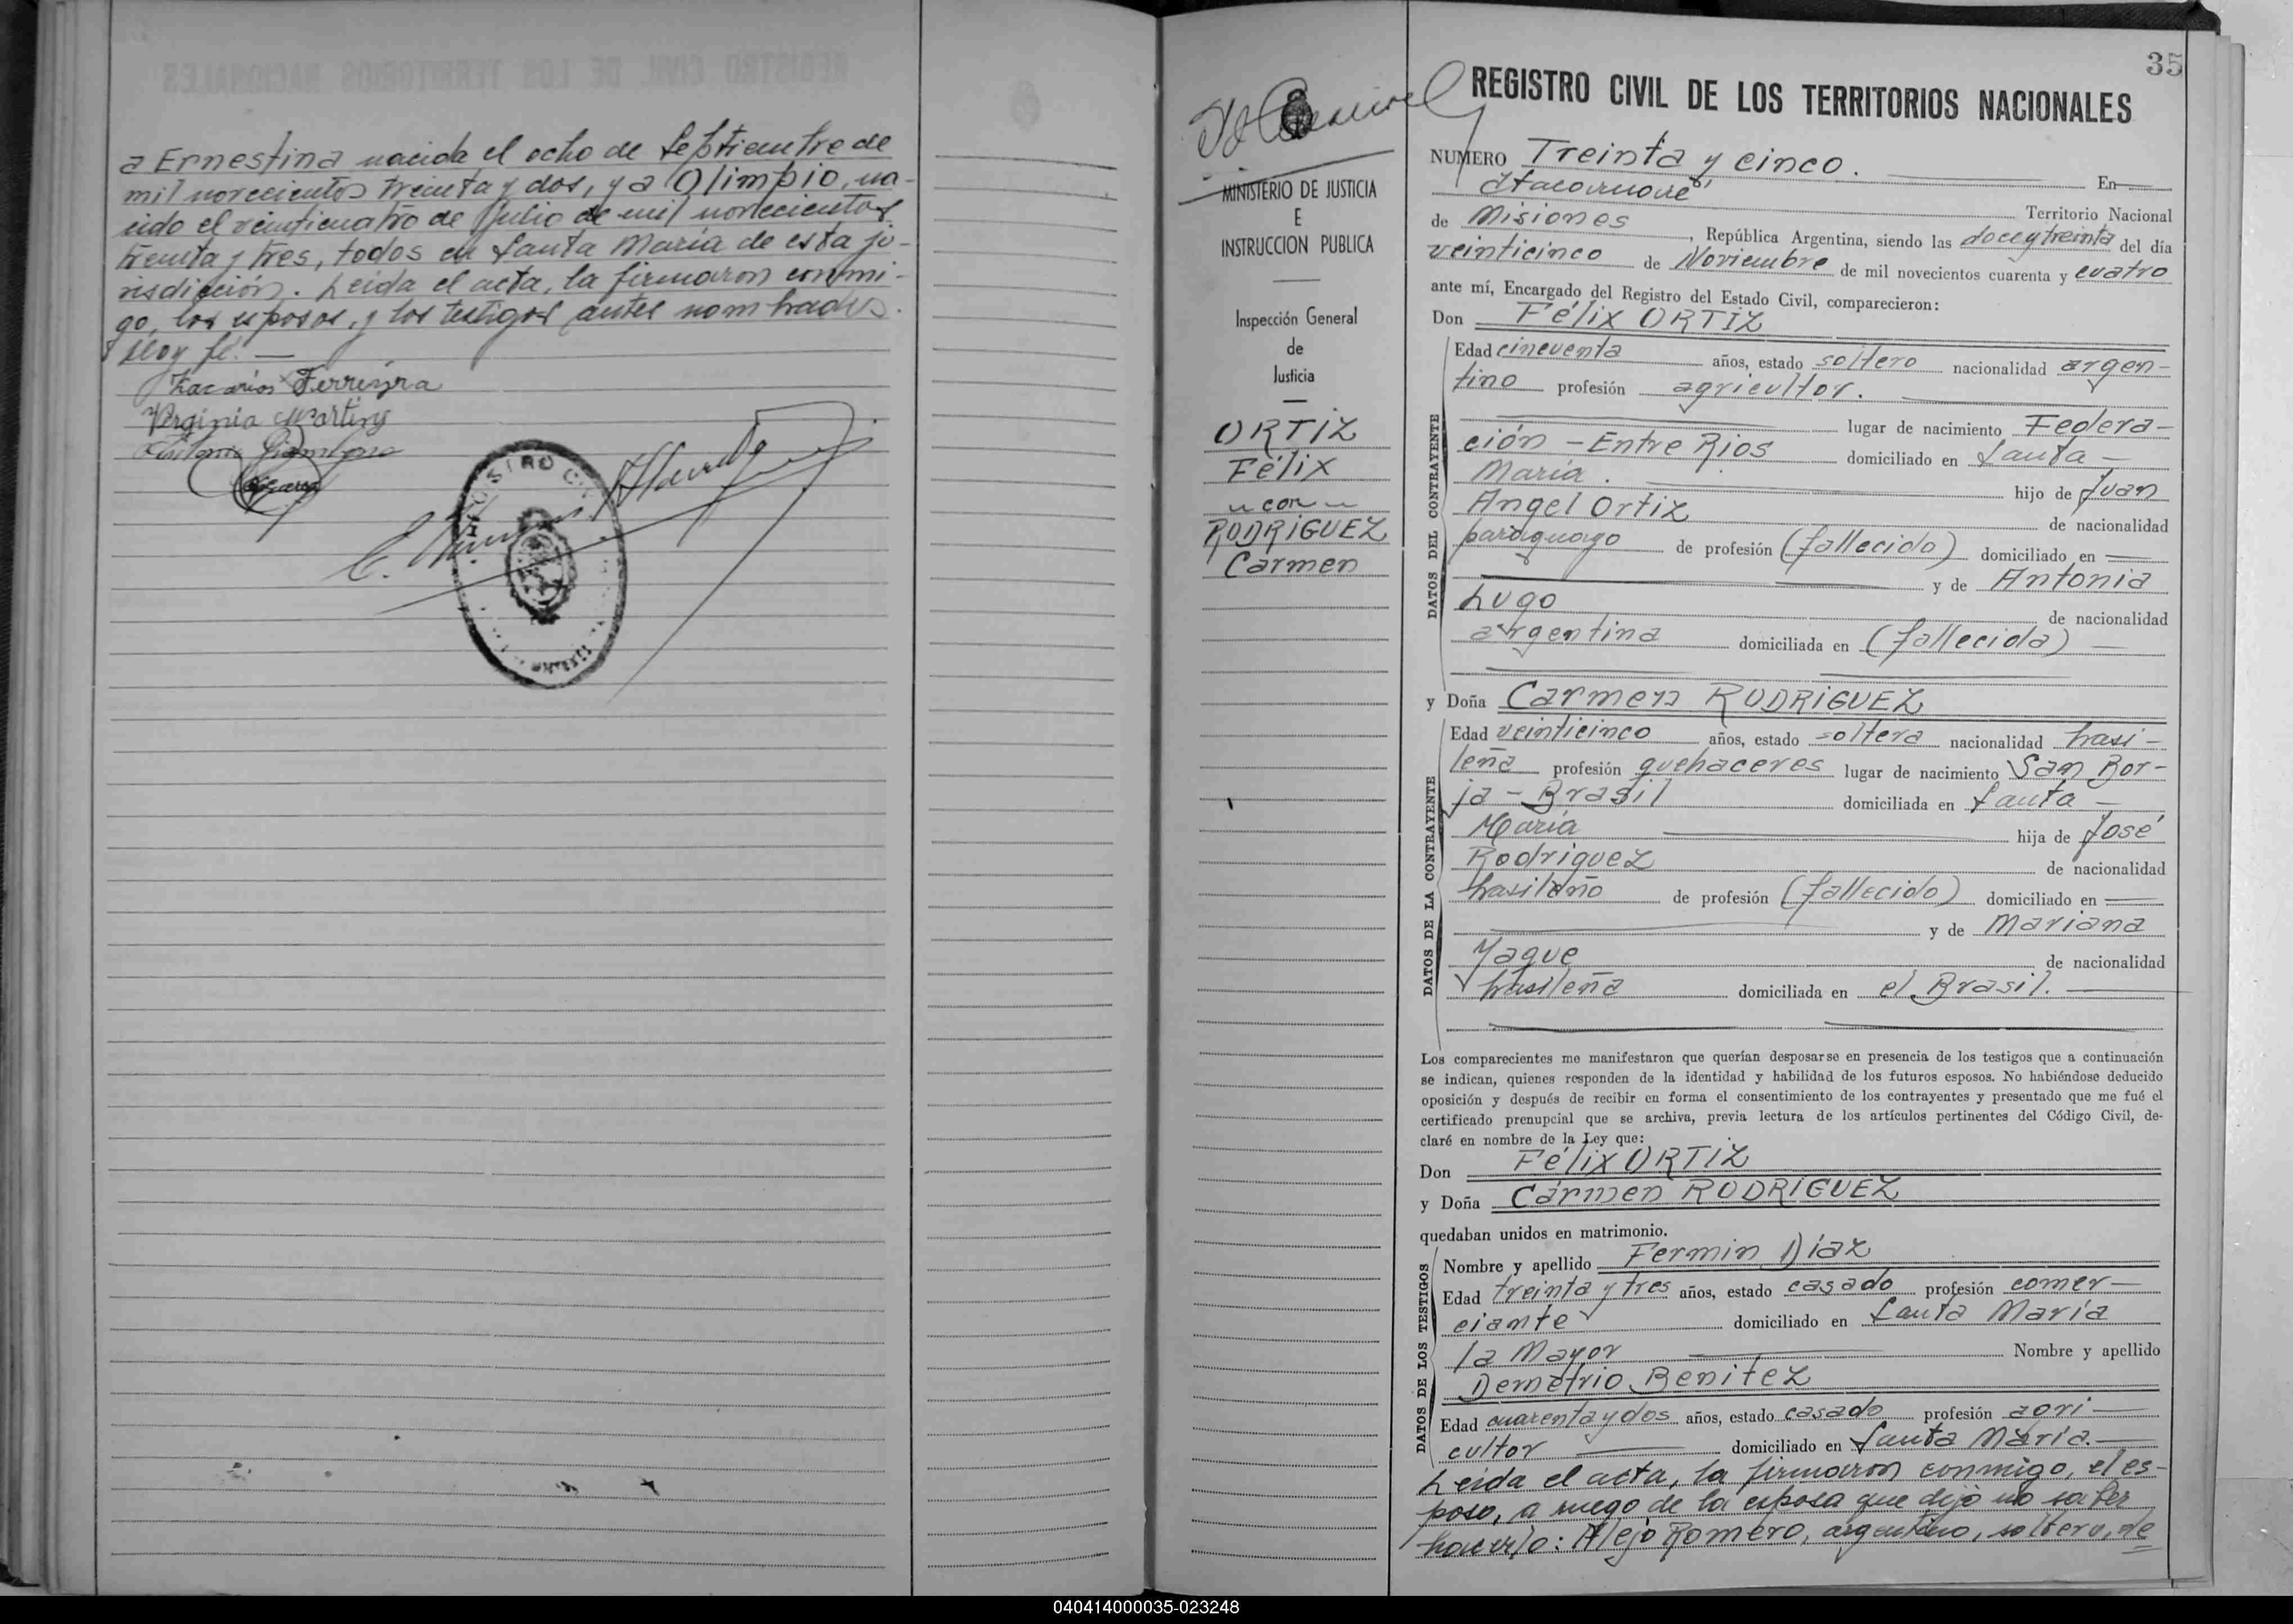 a Ernestina nacida el ocho de Septiembre de
mil novecientos treinta y dos, y a Olimpio, na-
cido el veinticuatro de Julio de mil novecientos
treinta y tres, todos en Santa María de esta ju-
risdicción. Leida el acta, la firmaron conmi-
go, los esposos, y los testigos antes nombrados.
Doy fé. —
Zacarias Ferreyra
Verginia Martins
35
REGISTRO CIVIL DE LOS TERRITORIOS NACIONALES
MINISTERIO DE JUSTICIA
E
INSTRUCCION PUBLICA
Inspección General
de
Justicia
ORTIZ
Félix
con
RODRIGUEZ
Carmen
NUMERO Treinta y cinco. En
Itacaruaré
Territorio Nacional
de Misiones, República Argentina, siendo las doce y treinta del día
veinticinco de Noviembre de mil novecientos cuarenta y cuatro
ante mí, Encargado del Registro del Estado Civil, comparecieron:
Don Félix ORTIZ
DATOS DEL CONTRAYENTE
Edad cincuenta años, estado soltero nacionalidad argen-
tino profesión agricultor.
lugar de nacimiento Federa-
ción - Entre Rios domiciliado en Santa
María. hijo de Juan
Angel Ortiz de nacionalidad
paraguayo de profesión (fallecido) domiciliado en
y de Antonia
Lugo de nacionalidad
argentina domiciliada en (fallecida)
y Doña Carmen RODRIGUEZ
DATOS DE LA CONTRAYENTE
Edad veinticinco años, estado soltera nacionalidad brasi-
leña profesión quehaceres lugar de nacimiento San Bor-
ja - Brasil domiciliada en Santa
María hija de José
Rodriguez de nacionalidad
brasileño de profesión (fallecido) domiciliado en
y de Mariana
Yaque de nacionalidad
brasileña domiciliada en el Brasil.
Los comparecientes me manifestaron que querían desposarse en presencia de los testigos que a continuación
se indican, quienes responden de la identidad y habilidad de los futuros esposos. No habiéndose deducido
oposición y después de recibir en forma el consentimiento de los contrayentes y presentado que me fué el
certificado prenupcial que se archiva, previa lectura de los artículos pertinentes del Código Civil, de-
claré en nombre de la Ley que:
Don Félix ORTIZ
y Doña Carmen RODRIGUEZ
quedaban unidos en matrimonio.
DATOS DE LOS TESTIGOS
Nombre y apellido Fermin Diaz
Edad treinta y tres años, estado casado profesión comer-
ciante domiciliado en Santa María
la Mayor Nombre y apellido
Demetrio Benitez
Edad cuarenta y dos años, estado casado profesión agri-
cultor domiciliado en Santa María.
Leida el acta, la firmaron conmigo, el es-
poso, a ruego de la esposa que dijo no saber
hacerlo: Alejo Romero, argentino, soltero, de
040414000035-023248